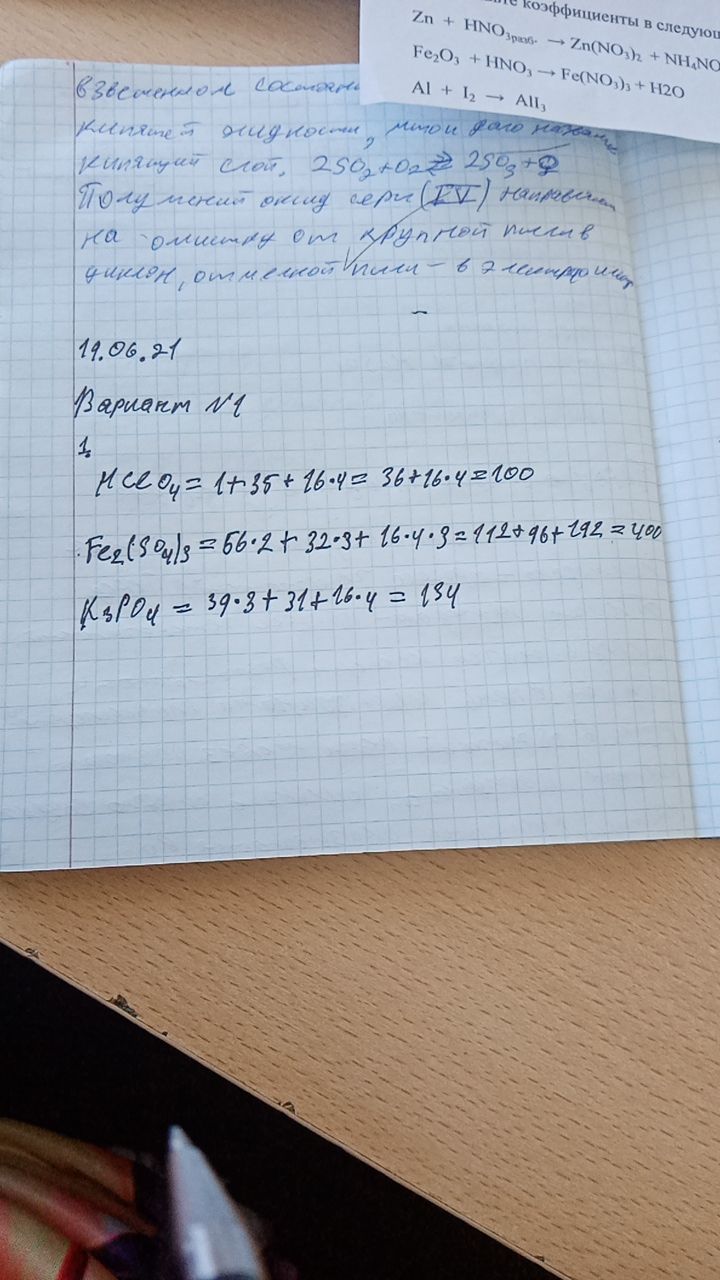 коэффициенты в следующ
Zn + HNO₃разб. → Zn(NO₃)₂ + NH₄NO
Fe₂O₃ + HNO₃ → Fe(NO₃)₃ + H2O
Al + I₂ → AlI₃
взвешенном состоян
кипящей жидкости,
кипящий слой. 2SO₂+O₂⇄ 2SO₃+Q
оксид серы (IV)
на очистку от крупной пыли в
циклон, от мелкой пыли – в
19.06.21
Вариант №1
1.
HClO₄ = 1+35+16·4= 36+16·4=100
Fe₂(SO₄)₃ = 56·2+ 32·3+ 16·4·3=112+96+192=400
K₃PO₄ = 39·3+31+16·4 = 134